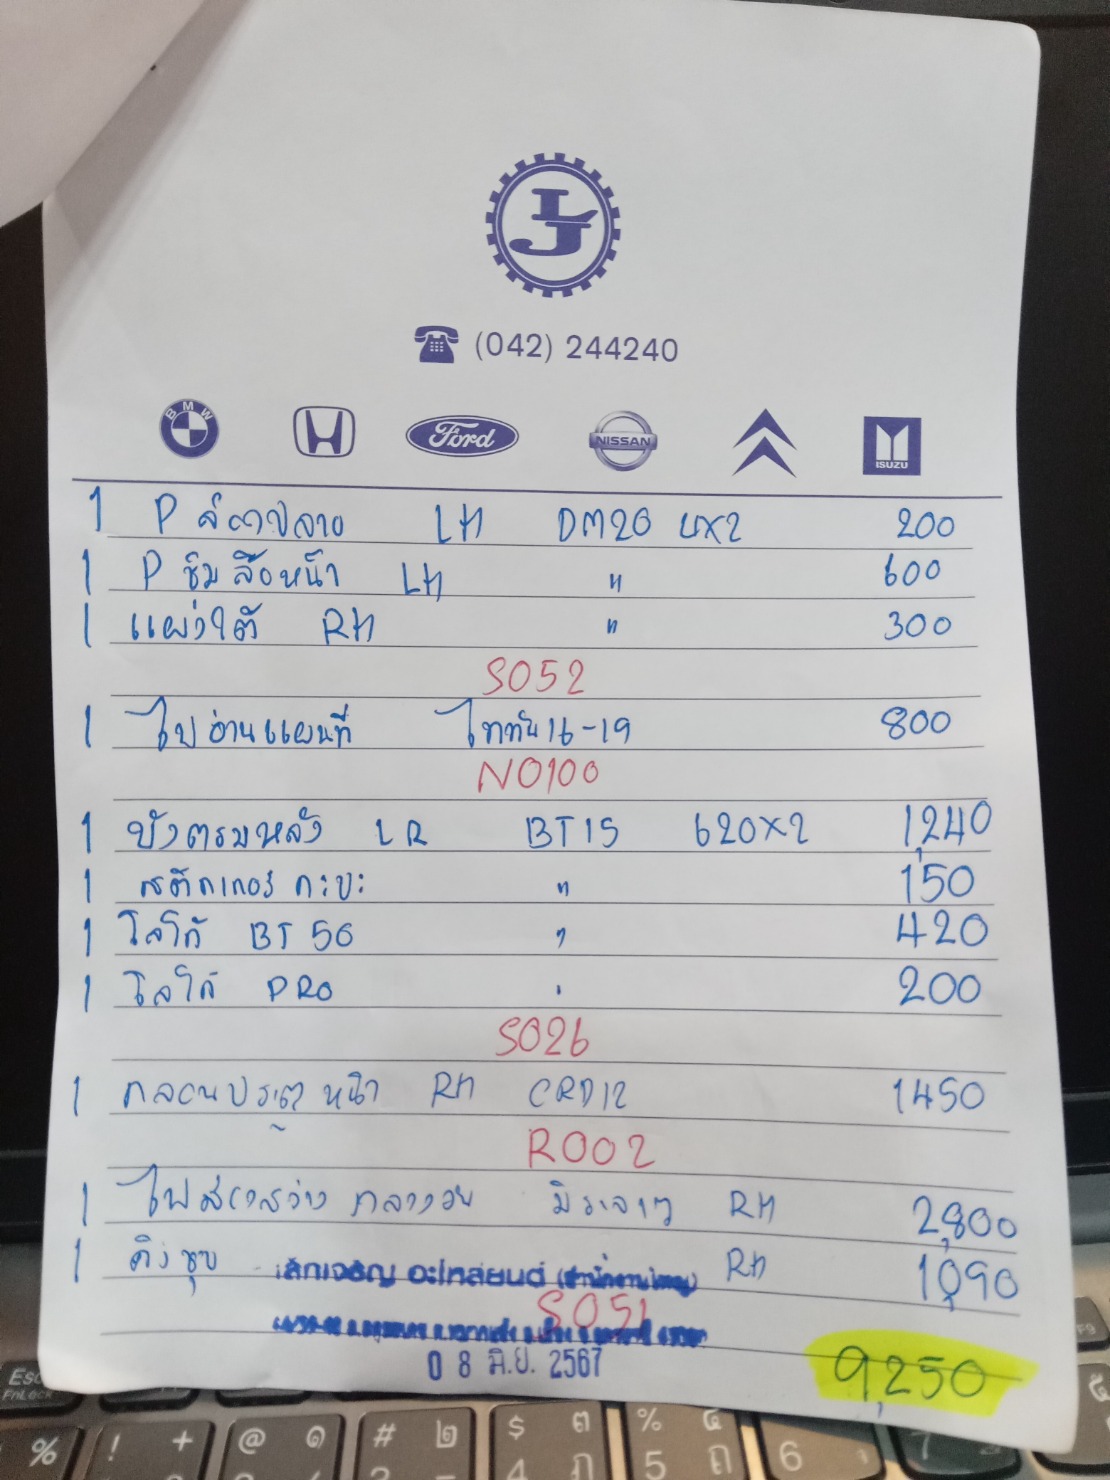 LJ
(042) 244240
BMW Ford NISSAN ISUZU
1 P LH DM20 4X2 200
1 P ซุ้มล้อหน้า LH " 600
1 แผงใต้ RH " 300
S052
1 ไฟอ่านแผนที่ ไททัน16-19 800
N0100
1 บังตรมหลัง LR BT15 620X2 1,240
1 สติกเกอร์ กะบะ " 150
1 โลโก้ BT 50 " 420
1 โลโก้ PRO " 200
S026
1 ประตู หน้า RH CRD12 1450
R002
1 ไฟ RH 2,800
1 คิ้วซุ้ม RH 1,090
เล็กเจริญ อะไหล่ยนต์ (สำนักงานใหญ่)
S051
0 8 มิ.ย. 2567
9,250
Esc
FnLock
F9
% ! + @ ๑ # ๒ $ ๓ % ๔
3 4 ภ 5 ถ 6 7